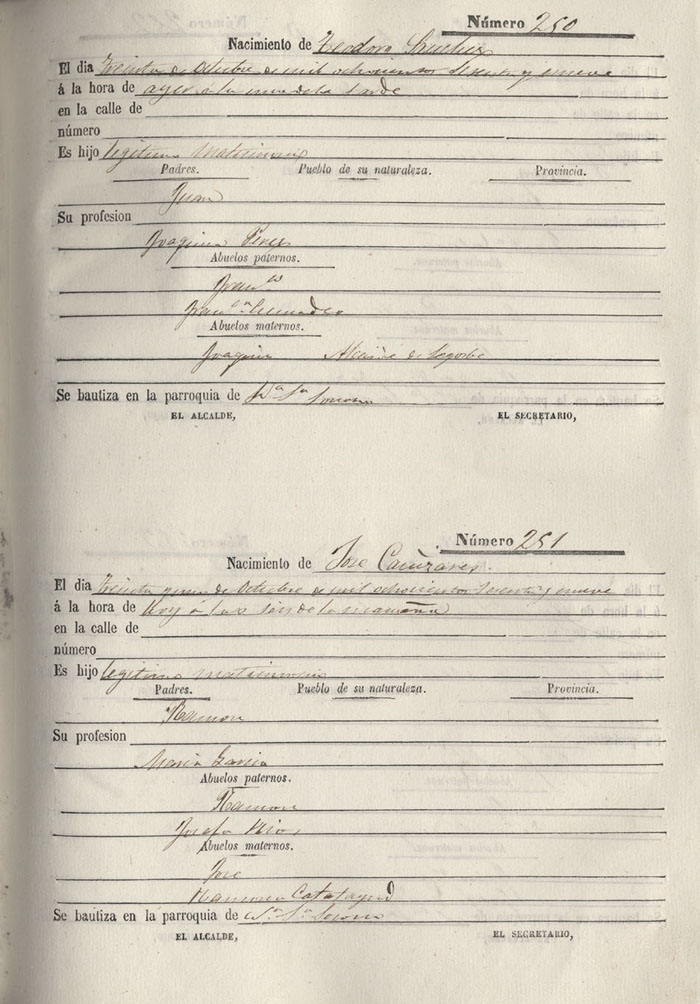 Número 250
Nacimiento de Teodoro Sanchez
El dia treinta de Octubre de mil ochocientos sesenta y nueve
á la hora de ayer á la una de la tarde
en la calle de
número
Es hijo legitimo matrimonio
Padres. Pueblo de su naturaleza. Provincia.
Juan
Su profesion
Joaquina Perez
Abuelos paternos.
Fran.co
Fran.ca
Abuelos maternos.
Joaquin de Segorbe
Se bautiza en la parroquia de
EL ALCALDE, EL SECRETARIO,
Número 251
Nacimiento de Jose Cañizares
El dia treinta y uno de Octubre de mil ochocientos sesenta y nueve
á la hora de hoy á las seis de la mañana
en la calle de
número
Es hijo legitimo matrimonio
Padres. Pueblo de su naturaleza. Provincia.
Ramon
Su profesion
Maria Garcia
Abuelos paternos.
Ramon
Josefa Rios
Abuelos maternos.
Jose
Ramona
Se bautiza en la parroquia de
EL ALCALDE, EL SECRETARIO,